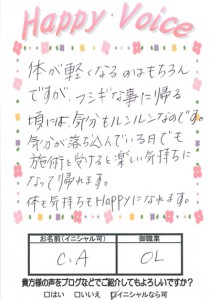 Happy Voice
体が軽くなるのはもちろん
ですが、フシギな事に帰る
頃には気分もルンルンなのです。
気分が落ち込んでいる日でも
施術を受けると楽しい気持ちに
なって帰れます。
体も気持ちもHappyになれます。
お名前(イニシャル可)
御職業
C.A
OL
貴方様の声をブログなどでご紹介してもよろしいですか?
□はい □いいえ ☑イニシャルなら可